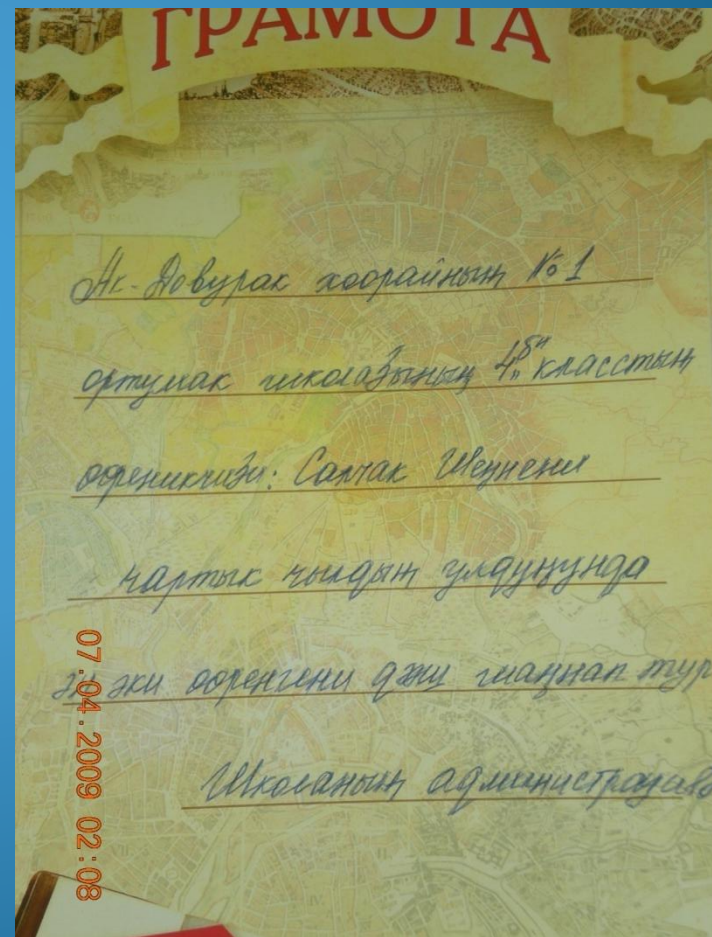 ГРАМОТА
Ак-Довурак хоорайның № 1
ортумак школазының 4"б" класстың
өөреникчизи: Салчак Шеңнени
чартык чылдың үлдүңүнде
эки өөренгени дээш шаңнап тур
Школаның
07.04.2009 02:08